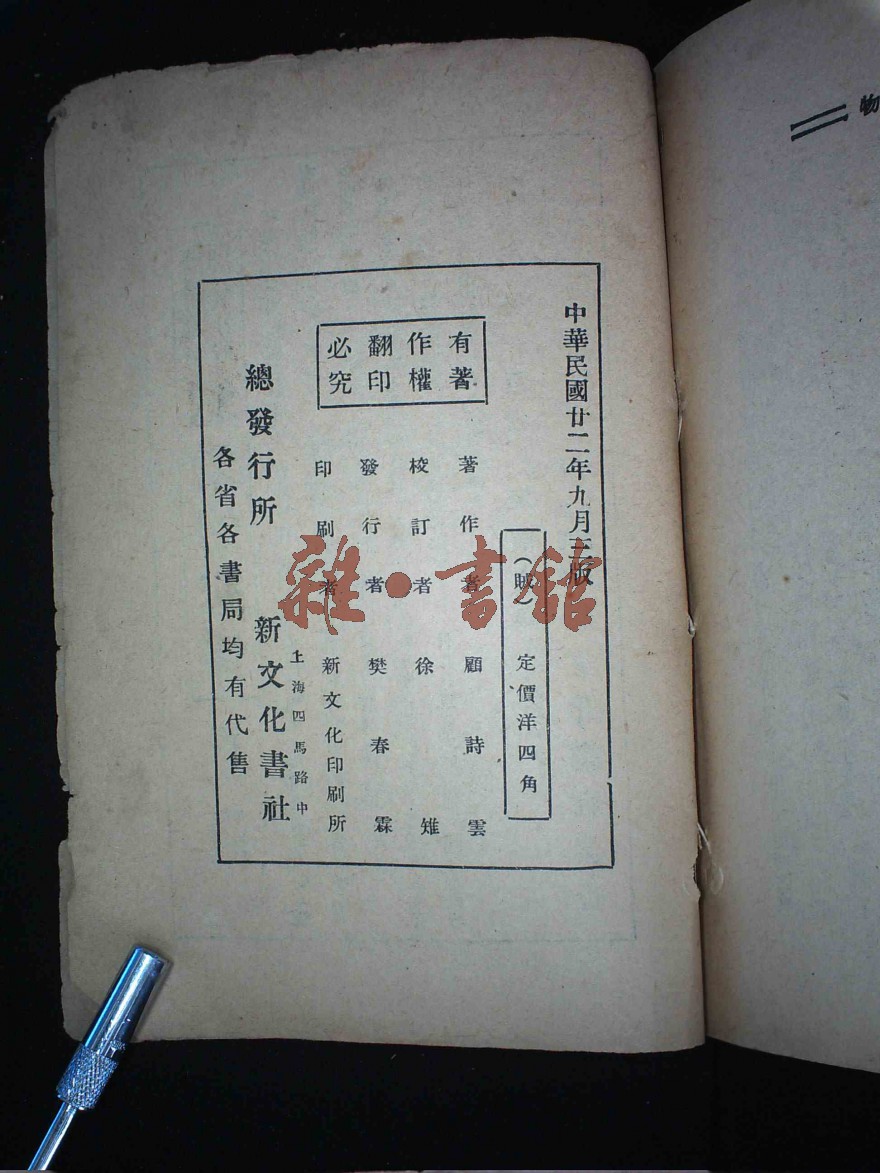 中華民國廿二年九月三版
定價洋四角
有著
作權
翻印
必究
著作者 顧詩雲
校訂者 徐雉
發行者 樊春霖
印刷者 新文化印刷所
上海四馬路中
總發行所 新文化書社
各省各書局均有代售
雜·書館
物